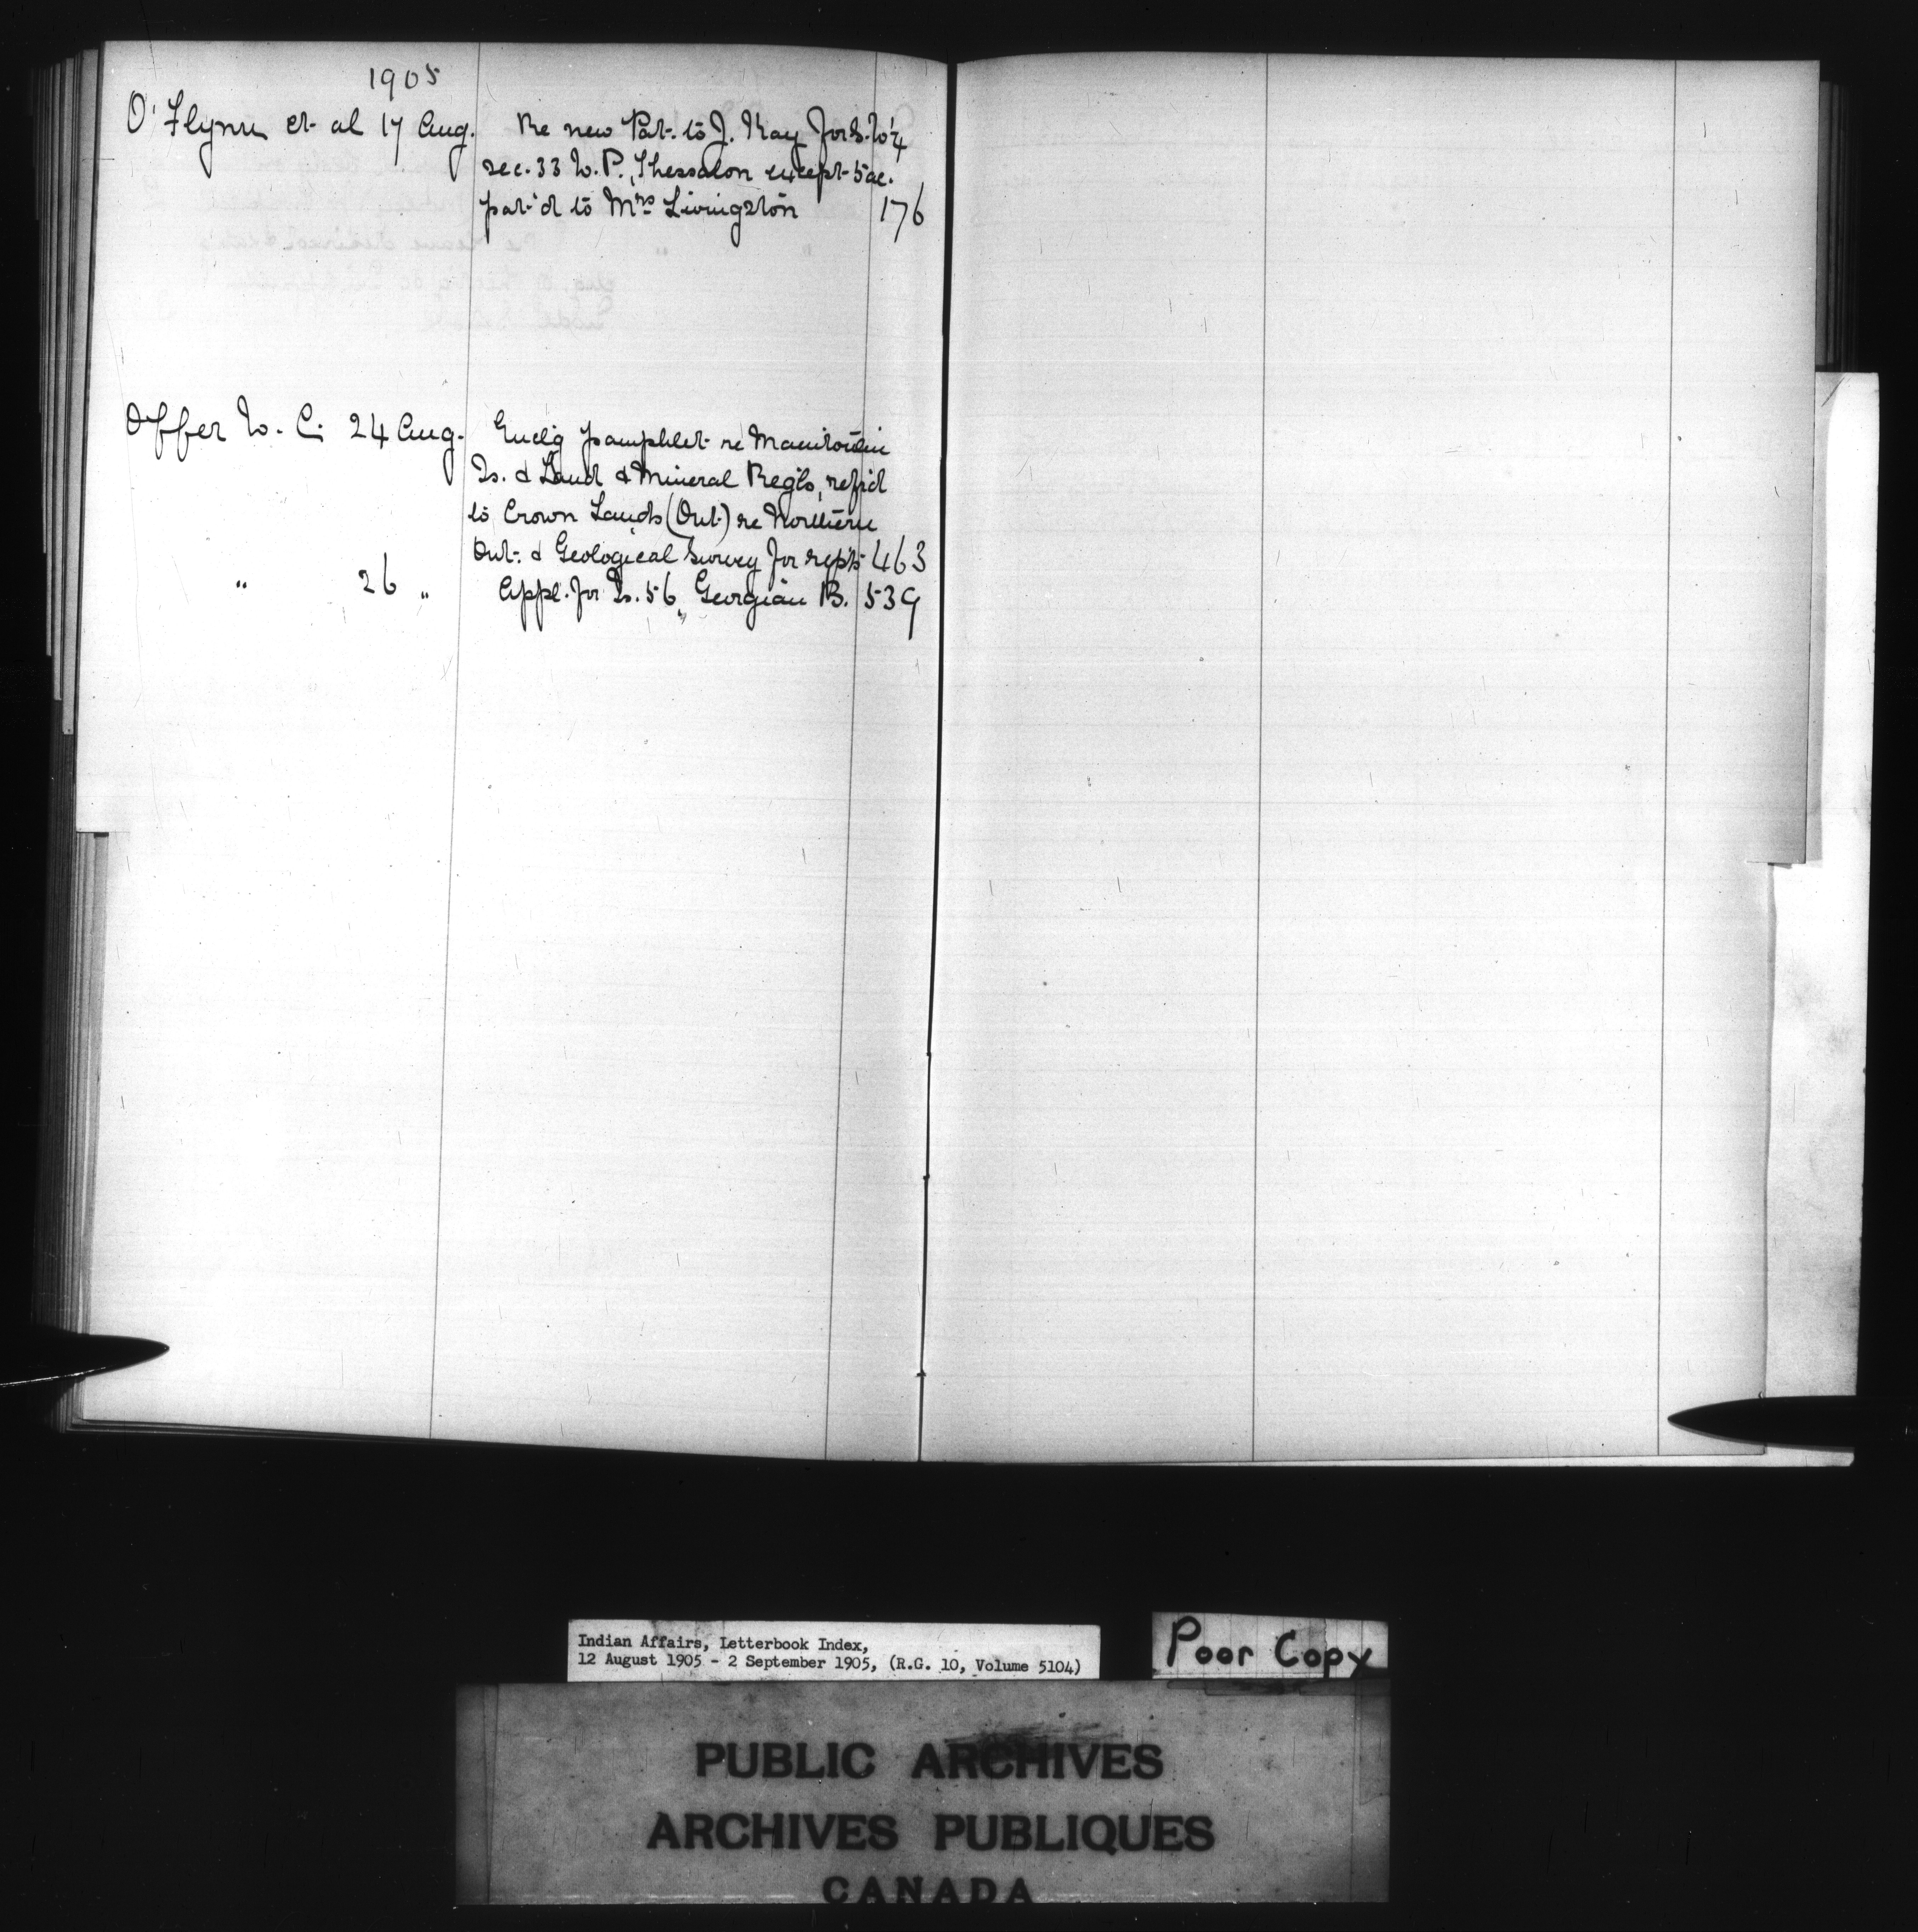 1905
O'Flynn et al 17 Aug. Re new Pat. to J. Kay for S.W¼
sec. 33 W. P., Thessalon except 5 ac.
pat'd to Mrs Livingston 176
Offer W. C. 24 Aug. Encl'g pamphlet re Manitoulin
Is. & Land & Mineral Reg'ls, ref'd
to Crown Lands (Ont.) re Northern
Ont. & Geological Survey for rep'ts 463
" 26 " Appl. for Is. 56, Georgian B. 539
Indian Affairs, Letterbook Index,
12 August 1905 - 2 September 1905, (R.G. 10, Volume 5104)
Poor Copy
PUBLIC ARCHIVES
ARCHIVES PUBLIQUES
CANADA